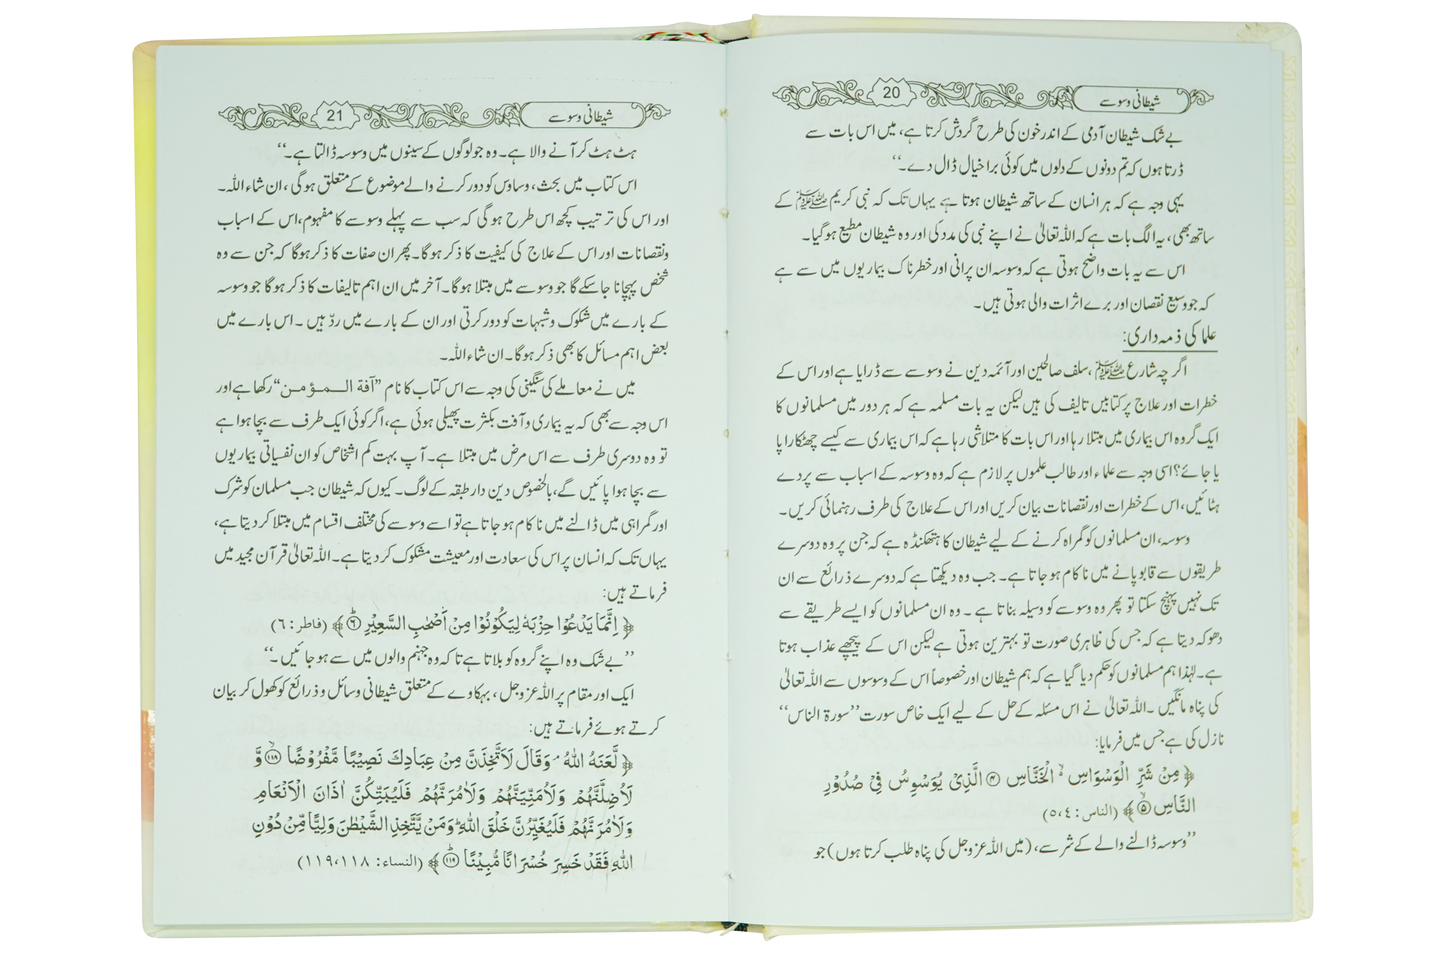 شیطانی وسوسے
20
بے شک شیطان آدمی کے اندر خون کی طرح گردش کرتا ہے، میں اس بات سے
ڈرتا ہوں کہ تم دونوں کے دلوں میں کوئی برا خیال ڈال دے۔‘‘
یہی وجہ ہے کہ ہر انسان کے ساتھ شیطان ہوتا ہے یہاں تک کہ نبی کریم ﷺ کے
ساتھ بھی، یہ الگ بات ہے کہ اللہ تعالیٰ نے اپنے نبی کی مدد کی اور وہ شیطان مطیع ہو گیا۔
اس سے یہ بات واضح ہوتی ہے کہ وسوسہ ان پرانی اور خطرناک بیماریوں میں سے ہے
کہ جو وسیع نقصان اور برے اثرات والی ہوتی ہیں۔
علما کی ذمہ داری:
اگرچہ شارع ﷺ، سلف صالحین اور آئمہ دین نے وسوسے سے ڈرایا ہے اور اس کے
خطرات اور علاج پر کتابیں تالیف کی ہیں لیکن یہ بات مسلمہ ہے کہ ہر دور میں مسلمانوں کا
ایک گروہ اس بیماری میں مبتلا رہا اور اس بات کا متلاشی رہا ہے کہ اس بیماری سے کیسے چھٹکارا پا
یا جائے؟ اسی وجہ سے علماء اور طالب علموں پر لازم ہے کہ وہ وسوسہ کے اسباب سے پردے
ہٹائیں، اس کے خطرات اور نقصانات بیان کریں اور اس کے علاج کی طرف رہنمائی کریں۔
وسوسہ، ان مسلمانوں کو گمراہ کرنے کے لیے شیطان کا ہتھکنڈہ ہے کہ جن پر وہ دوسرے
طریقوں سے قابو پانے میں ناکام ہو جاتا ہے۔ جب وہ دیکھتا ہے کہ دوسرے ذرائع سے ان
تک نہیں پہنچ سکتا تو پھر وہ وسوسہ کو وسیلہ بناتا ہے۔ وہ ان مسلمانوں کو ایسے طریقے سے
دھوکہ دیتا ہے کہ جس کی ظاہری صورت تو بہترین ہوتی ہے لیکن اس کے پیچھے عذاب ہوتا
ہے۔ لہٰذا ہم مسلمانوں کو حکم دیا گیا ہے کہ ہم شیطان اور خصوصاً اس کے وسوسوں سے اللہ تعالیٰ
کی پناہ مانگیں۔ اللہ تعالیٰ نے اس مسئلہ کے حل کے لیے ایک خاص سورت ’’سورۃ الناس‘‘
نازل کی ہے جس میں فرمایا:
﴿ مِنْ شَرِّ الْوَسْوَاسِ ۙ الْخَنَّاسِ ۝۴ الَّذِیْ یُوَسْوِسُ فِیْ صُدُوْرِ
النَّاسِ ۝۵ ﴾ (الناس: ۵،۴)
’’وسوسہ ڈالنے والے کے شر سے، (میں اللہ عزوجل کی پناہ طلب کرتا ہوں) جو
شیطانی وسوسے
21
ہٹ ہٹ کر آنے والا ہے۔ وہ جو لوگوں کے سینوں میں وسوسہ ڈالتا ہے۔‘‘
اس کتاب میں بحث، وساوس کو دور کرنے والے موضوع کے متعلق ہو گی، ان شاء اللہ۔
اور اس کی ترتیب کچھ اس طرح ہو گی کہ سب سے پہلے وسوسے کا مفہوم، اس کے اسباب
ونقصانات اور اس کے علاج کی کیفیت کا ذکر ہو گا۔ پھر ان صفات کا ذکر ہو گا کہ جن سے وہ
شخص پہچانا جا سکے گا جو وسوسے میں مبتلا ہو گا۔ آخر میں ان اہم تالیفات کا ذکر ہو گا جو وسوسہ
کے بارے میں شکوک وشبہات کو دور کرتی اور ان کے بارے میں ردّ ہیں۔ اس بارے میں
بعض اہم مسائل کا بھی ذکر ہو گا۔ ان شاء اللہ۔
میں نے معاملے کی سنگینی کی وجہ سے اس کتاب کا نام ’’آفة المؤمن‘‘ رکھا ہے اور
اس وجہ سے بھی کہ یہ بیماری و آفت بکثرت پھیلی ہوئی ہے، اگر کوئی ایک طرف سے بچا ہوا ہے
تو وہ دوسری طرف سے اس مرض میں مبتلا ہے۔ آپ بہت کم اشخاص کو ان نفسیاتی بیماریوں
سے بچا ہوا پائیں گے، بالخصوص دین دار طبقہ کے لوگ۔ کیوں کہ شیطان جب مسلمان کو شرک
اور گمراہی میں ڈالنے میں ناکام ہو جاتا ہے تو اسے وسوسے کی مختلف اقسام میں مبتلا کر دیتا ہے،
یہاں تک کہ انسان پر اس کی سعادت اور معیشت مشکوک کر دیتا ہے۔ اللہ تعالیٰ قرآن مجید میں
فرماتے ہیں:
﴿ اِنَّمَا یَدْعُوْا حِزْبَهٗ لِیَكُوْنُوْا مِنْ اَصْحٰبِ السَّعِیْرِ ۝۶ ﴾ (فاطر: ۶)
’’بے شک وہ اپنے گروہ کو بلاتا ہے تاکہ وہ جہنم والوں میں سے ہو جائیں۔‘‘
ایک اور مقام پر اللہ عزوجل، بہکاوے کے متعلق شیطانی وسائل و ذرائع کو کھول کر بیان
کرتے ہوئے فرماتے ہیں:
﴿ لَّعَنَهُ اللّٰهُ ۘ وَقَالَ لَاَتَّخِذَنَّ مِنْ عِبَادِكَ نَصِیْبًا مَّفْرُوْضًا ۝۱۱۸ۙ وَّ
لَاُضِلَّنَّهُمْ وَلَاُمَنِّیَنَّهُمْ وَلَاٰمُرَنَّهُمْ فَلَیُبَتِّكُنَّ اٰذَانَ الْاَنْعَامِ
وَلَاٰمُرَنَّهُمْ فَلَیُغَیِّرُنَّ خَلْقَ اللّٰهِ ؕ وَمَنْ یَّتَّخِذِ الشَّیْطٰنَ وَلِیًّا مِّنْ دُوْنِ
اللّٰهِ فَقَدْ خَسِرَ خُسْرَانًا مُّبِیْنًا ۝۱۱۹ؕ ﴾ (النساء: ۱۱۹،۱۱۸)